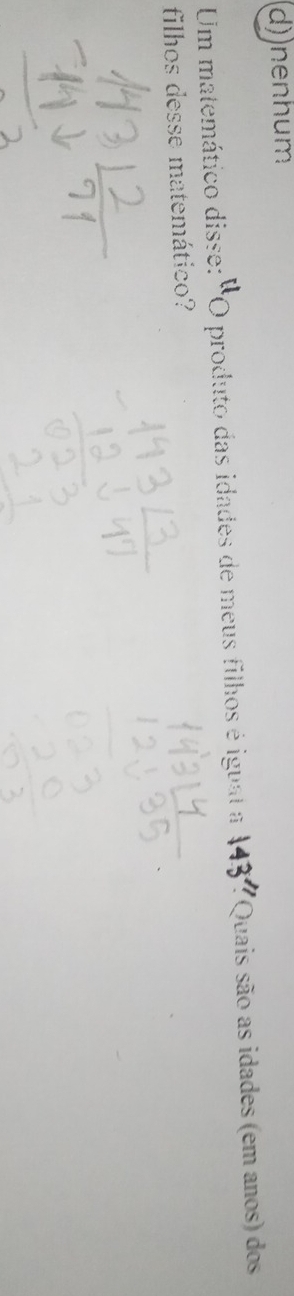 d) nenhum
Um matemático disse: "O produto das idades de meus filhos é igual a 143". Quais são as idades (em anos) dos
filhos desse matemático?
143 | 2
-14↓ 71
3
143 | 3
-12↓ 47
023
21
143 | 4
12↓ 35
023
20
03